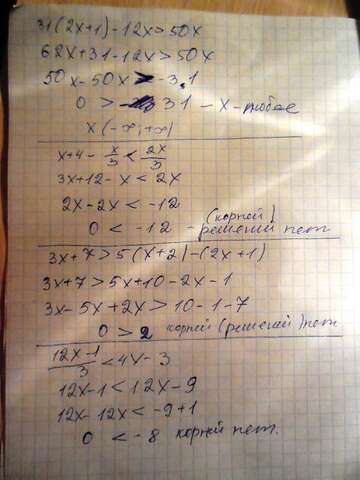 31(2x+1)-12x>50x
62x+31-12x>50x
50x-50x>-31
0>-31 - x-любое
x(-∞;+∞)
x+4-x/3<2x/3
3x+12-x<2x
2x-2x<-12
0<-12 - (корней) решений нет
3x+7>5(x+2)-(2x+1)
3x+7>5x+10-2x-1
3x-5x+2x>10-1-7
0>2 корней (решений) нет
(12x-1)/3<4x-3
12x-1<12x-9
12x-12x<-9+1
0<-8 корней нет.